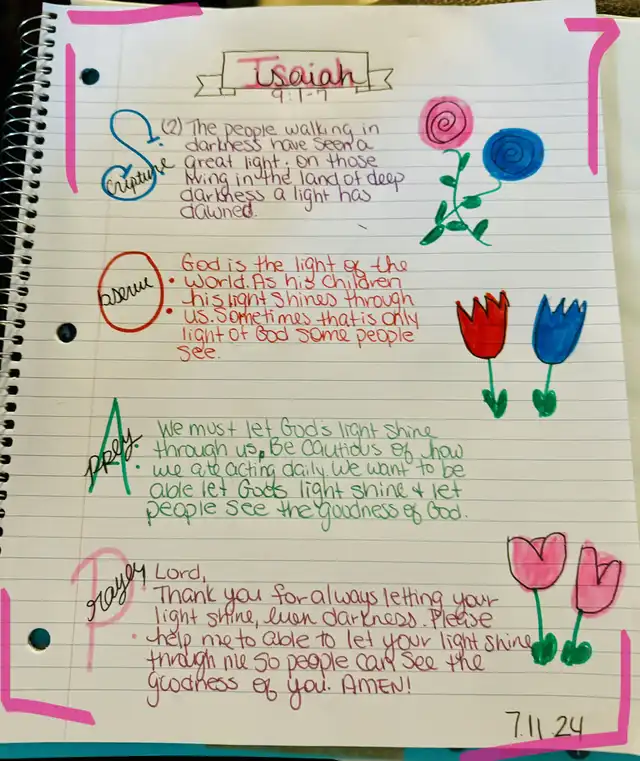 Isaiah
9:1-7
Scripture
(2) The people walking in
darkness have seen a
great light; on those
living in the land of deep
darkness a light has
dawned.
Observe
God is the light of the
world. As his children
his light shines through
us. Sometimes that is only
light of God some people
see.
Apply
We must let God's light shine
through us. Be cautious of how
we are acting daily. We want to be
able let God's light shine & let
people see the goodness of God.
Prayer
Lord,
Thank you for always letting your
light shine, even darkness. Please
help me to able to let your light shine
through me so people can see the
goodness of you. AMEN!
7.11.24